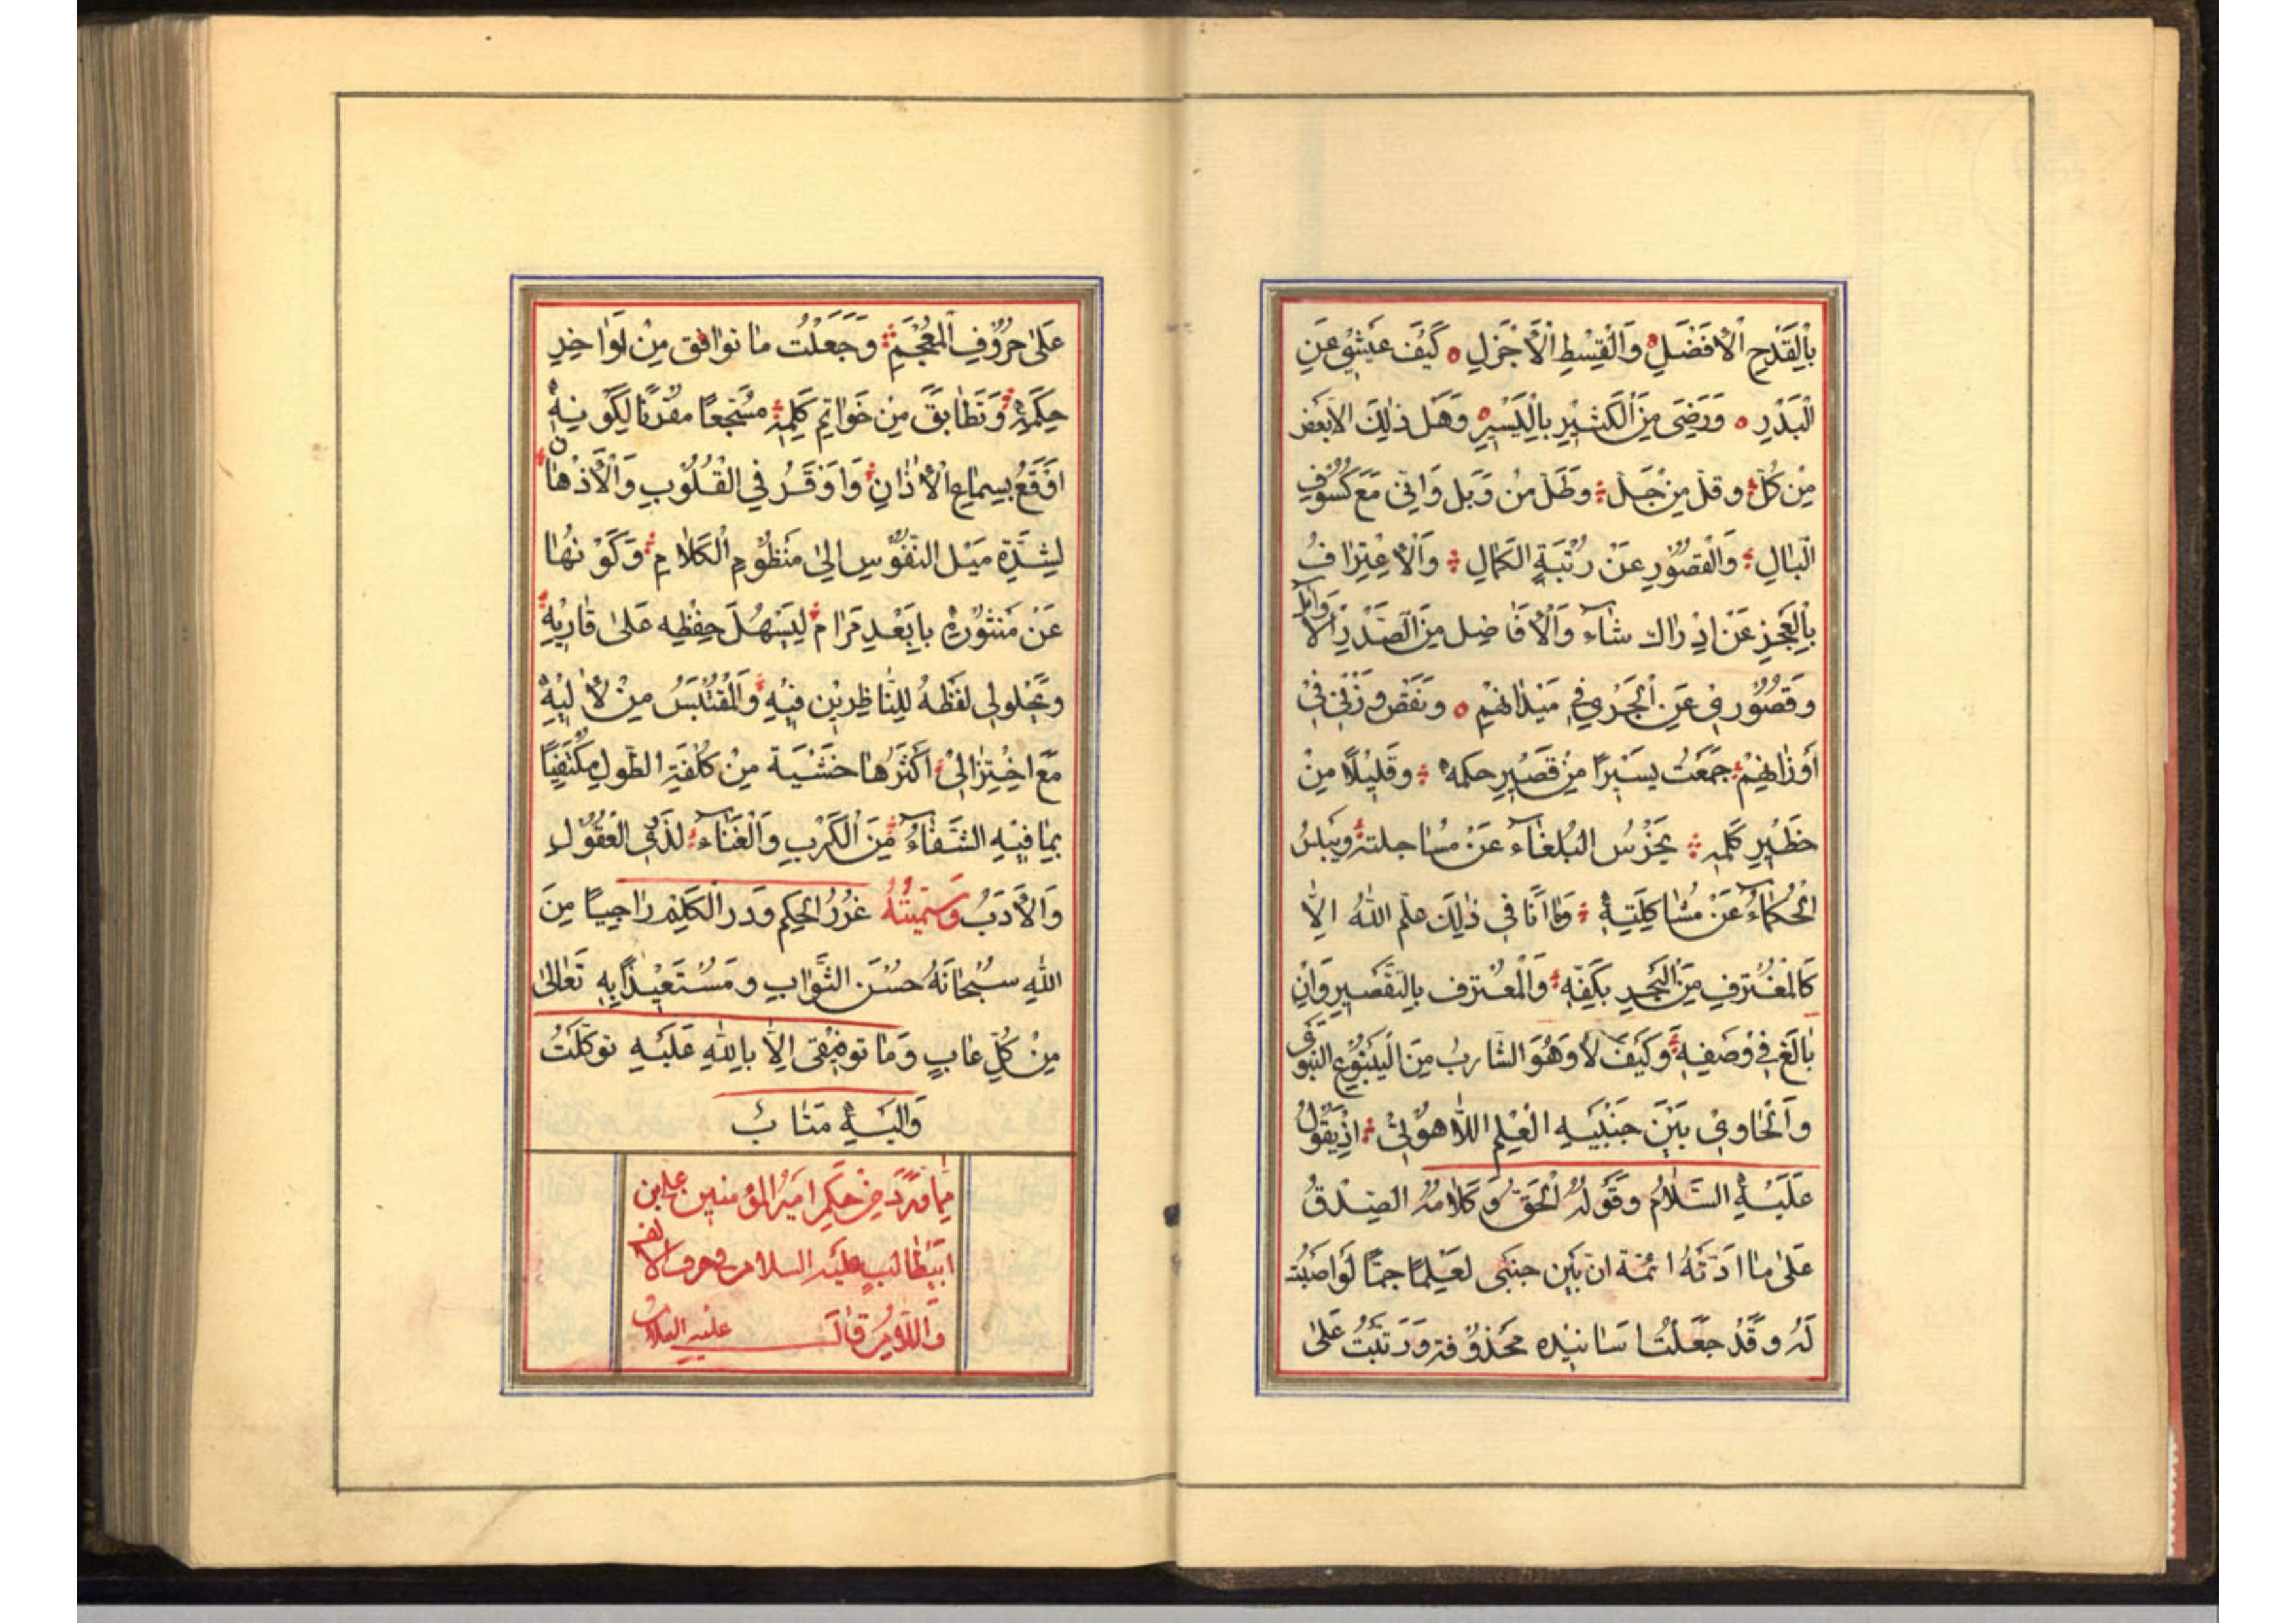 بِالْقَدْحِ الْأَفْضَلِ وَالْقِسْطِ الْأَجْزَلِ كَيْفَ عَيْشِي عَنِ
الْبَدْرِ وَرَضِيَ مِنَ الْكَثِيْرِ بِالْيَسِيْرِ وَهَل ذٰلِكَ الا بَعْض
مِنْ كُلّ وقلّ مِن جَلّ وَطَلّ مِنْ وَبل وَانّي مَعَ كُسُوْفِ
الْبٰالِ وَالْقُصُوْرِ عَنْ رُتْبَةِ الكَمٰالِ وَالْاِعْتِرٰافُ
بِالْعَجْزِ عَنْ اِدْرٰاك شٰاء وَالْأَفٰاضِل مِنَ الصَّدْرِ الْاَوَايل
وَقُصُوْرِيْ عَنِ الْجَرْيِ فِي مَيْدٰانِهِمْ وَنَقْص وَزْنِيْ فِيْ
أَوْزٰانِهِمْ جَمَعْتُ يَسِيْرًا مِنْ قَصِيْرِ حكمه وَقَلِيْلًا مِنْ
خَطِيْرِ كَلِمِهِ يَخْرُسُ الْبُلَغٰاء عَنْ مُسٰاجلته وَيبلسُ
الْحُكَمٰاءُ عَنْ مُشٰاكِلَتِهِ وَمٰا اَنَا فِي ذٰلِكَ عَلِمَ اللهُ اِلَّا
كَالمُغْتَرِفِ مِنَ الْبَحْرِ بِكَفِّهِ وَالْمُعْتَرِف بِالتَّقْصِيرِ وَاِنْ
بٰالَغَ فِيْ وَصْفِهِ وَكَيْفَ لَا وَهُوَ الشَّارِبُ مِنَ الْيَنْبُوْعِ النَّبَوِي
وَالْحٰاوِيْ بَيْنَ جَنْبَيْهِ الْعِلْمِ اللَّاهُوْتِيْ اِذْ يَقُوْلُ
عَلَيْهِ السَّلَامُ وَقَوْلُهُ الْحَقّ وَكَلَامُهُ الصِّدْقُ
عَلٰى مٰا اَدَّتْهُ ائمّة ان بَيْن جنبَي لَعِلْمًا جَمًّا لَوْ اَصَبْت
لَهُ وَقَدْ جَعَلْتُ اسَانِيْده مَحْذُوْفة وَرَتَّبْتُ عَلىٰ
عَلىٰ حُرُوْفِ الْمُعْجَمِ وَجَعَلْت مٰا تَوٰافَق مِنْ لَوٰاخِرِ
حِكَمِهِ وَتَطٰابَقَ مِنْ خَوٰاتِم كَلِمِهِ مُسَجَّعًا مقْرنًا لِكَوْنِهِ
اَوْقَعُ بِسِمٰاعِ الْاٰذٰانِ وَاَوْقَرُ فِي الْقُلُوْبِ وَالْاَذْهٰان
لِشِدَّةِ مَيْل النُّفُوْسِ اِلىٰ مَنْظُوْمِ الْكَلٰامِ وَكَوْنُهٰا
عَنْ مَنْثُوْرِهِ بِاَبْعَدِ مَرٰام لِيَسْهُلَ حِفْظِه عَلىٰ قٰارِيْهِ
وَيَحْلولي لَفْظُهُ لِلنّٰاظِرِيْن فِيْهِ وَالْمُقْتَبَسُ مِنْ لَاٰلِيْهِ
مَعَ اخْتِزٰالِيْ اَكْثَرُهٰا خَشْيَة مِنْ كُلْفَةِ الطّولِ مُكْتَفِيًا
بِمٰا فِيْهِ الشِّفٰاءُ مِنَ الْكَرْبِ وَالْغَنٰاء لِذَوِي الْعُقُوْلِ
وَالْأَدَبُ وَسَمَّيْتُهُ غُرَرُ الْحِكَم وَدرر الْكَلِمْ رٰاجِيًا مِنَ
اللهِ سُبْحٰانَهُ حُسْنَ الثَّوٰابِ وَمُسْتَعِيْذًا بِهِ تَعٰالىٰ
مِنْ كُلِّ عٰابٍ وَمٰا تَوفِيْقي اِلَّا بِاللهِ عَلَيْهِ تَوَكَّلْتُ
وَاِلَيْهِ مَتٰابُ
مِمّٰا وَرَدَ مِنْ حِكَمِ اَمِيرُ الْمُؤمنين علي بن
ابيطٰالب عليه السلام في حرف الالف
وَاللَّامِ قٰالَ عليه السلام